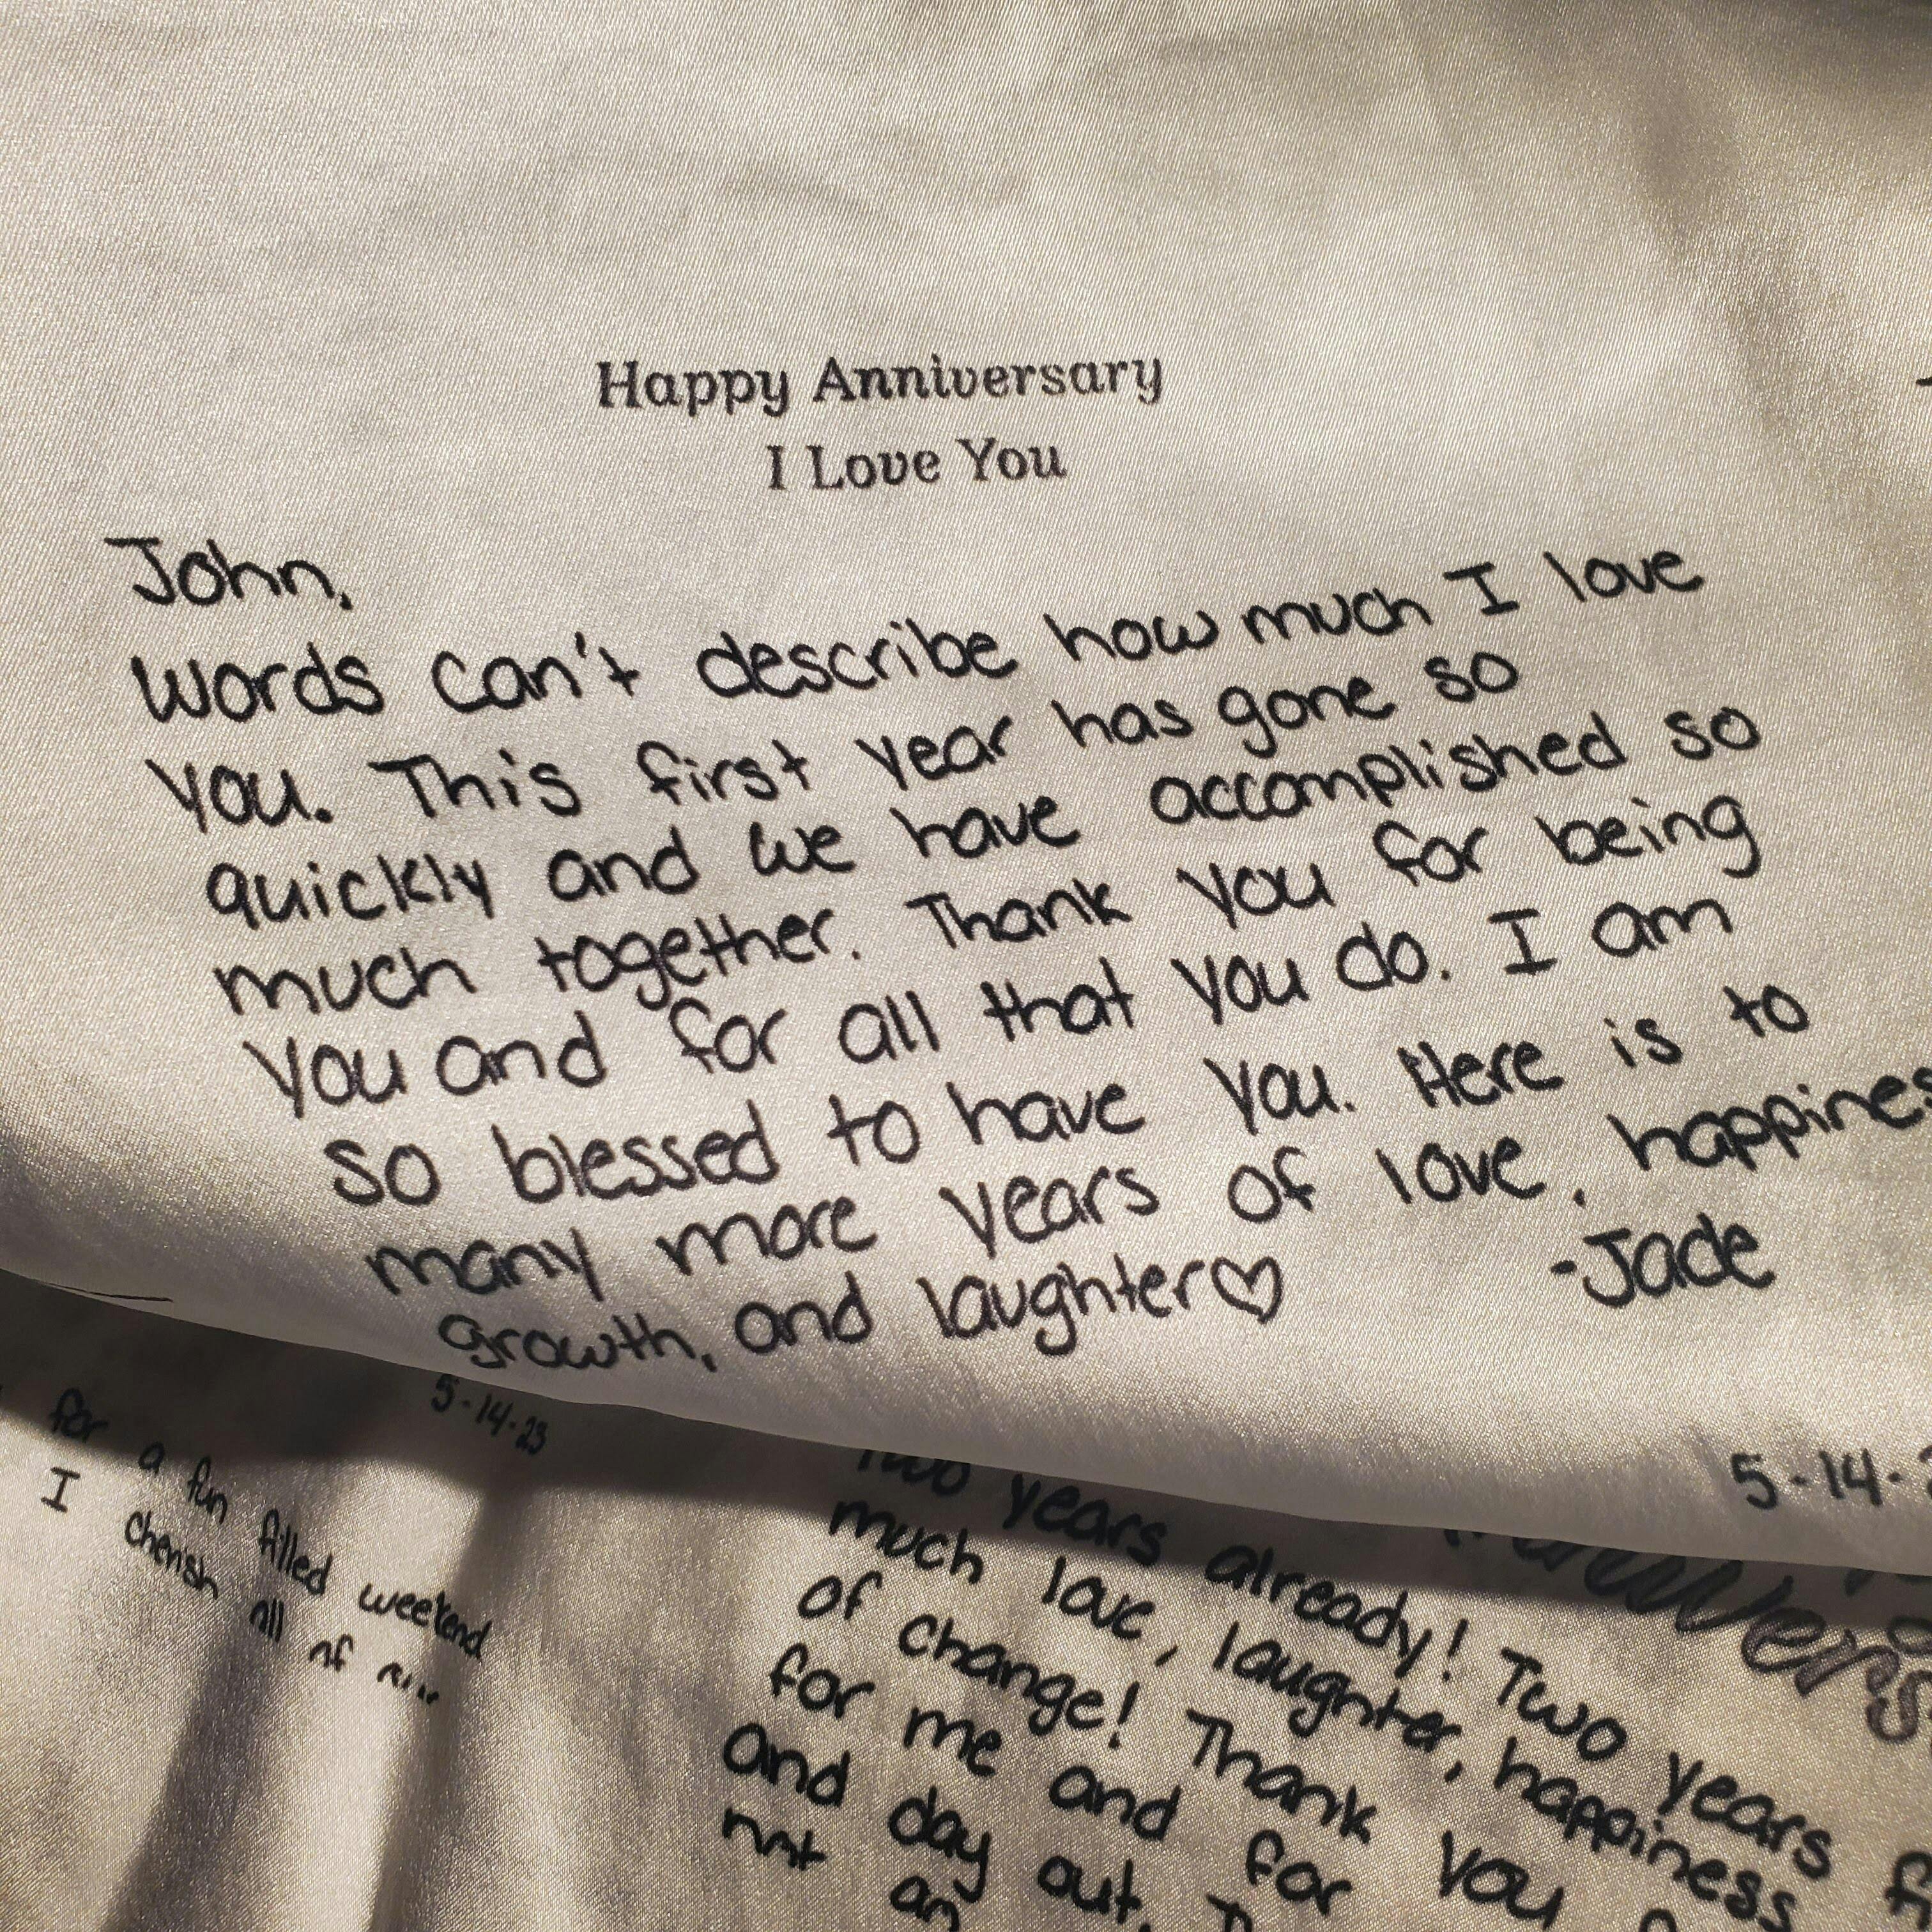 Happy Anniversary
I Love You
John,
Words can't describe how much I love
you. This first year has gone so
quickly and we have accomplished so
much together. Thank you for being
you and for all that you do. I am
so blessed to have you. Here is to
many more years of love, happines
growth, and laughter♡
-Jade
5-14-
5-14-23
for a fun filled weekend
I cherish all of
Two years already! Two years
much love, laughter, happiness
of change! Thank you
for me and for
and day out.
not an